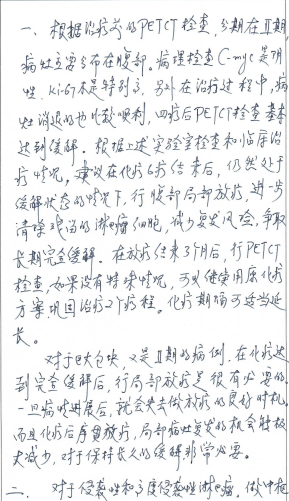 一、根据治疗前的PETCT检查,分期在II期,
病灶主要分布在腹部。病理检查C-myc是阴
性,Ki-67不是特别高,另外在治疗过程中,病
灶消退的也比较顺利,四疗后PETCT检查基本
达到缓解。根据上述实验室检查和临床治
疗情况,建议在化疗6疗结束后,仍然处于
缓解状态的情况下,行腹部局部放疗,进一步
清除残留的淋巴瘤细胞,减少复发风险,争取
长期完全缓解。在放疗结束3个月后,行PETCT
检查,如果没有特殊情况,可以继续使用原化疗
方案,巩固治疗2个疗程。化疗期间可适当延
长。
对于巨大包块,又是II期的病例,在化疗达
到完全缓解后,行局部放疗是很有必要的。
一旦病情进展后,就会失去做放疗的良好时机,
而且化疗后序贯放疗,局部病灶复发的机会将极
大减少,对于保持长久的缓解非常必要。
二、对于侵袭性和高度侵袭性淋巴瘤,做中枢